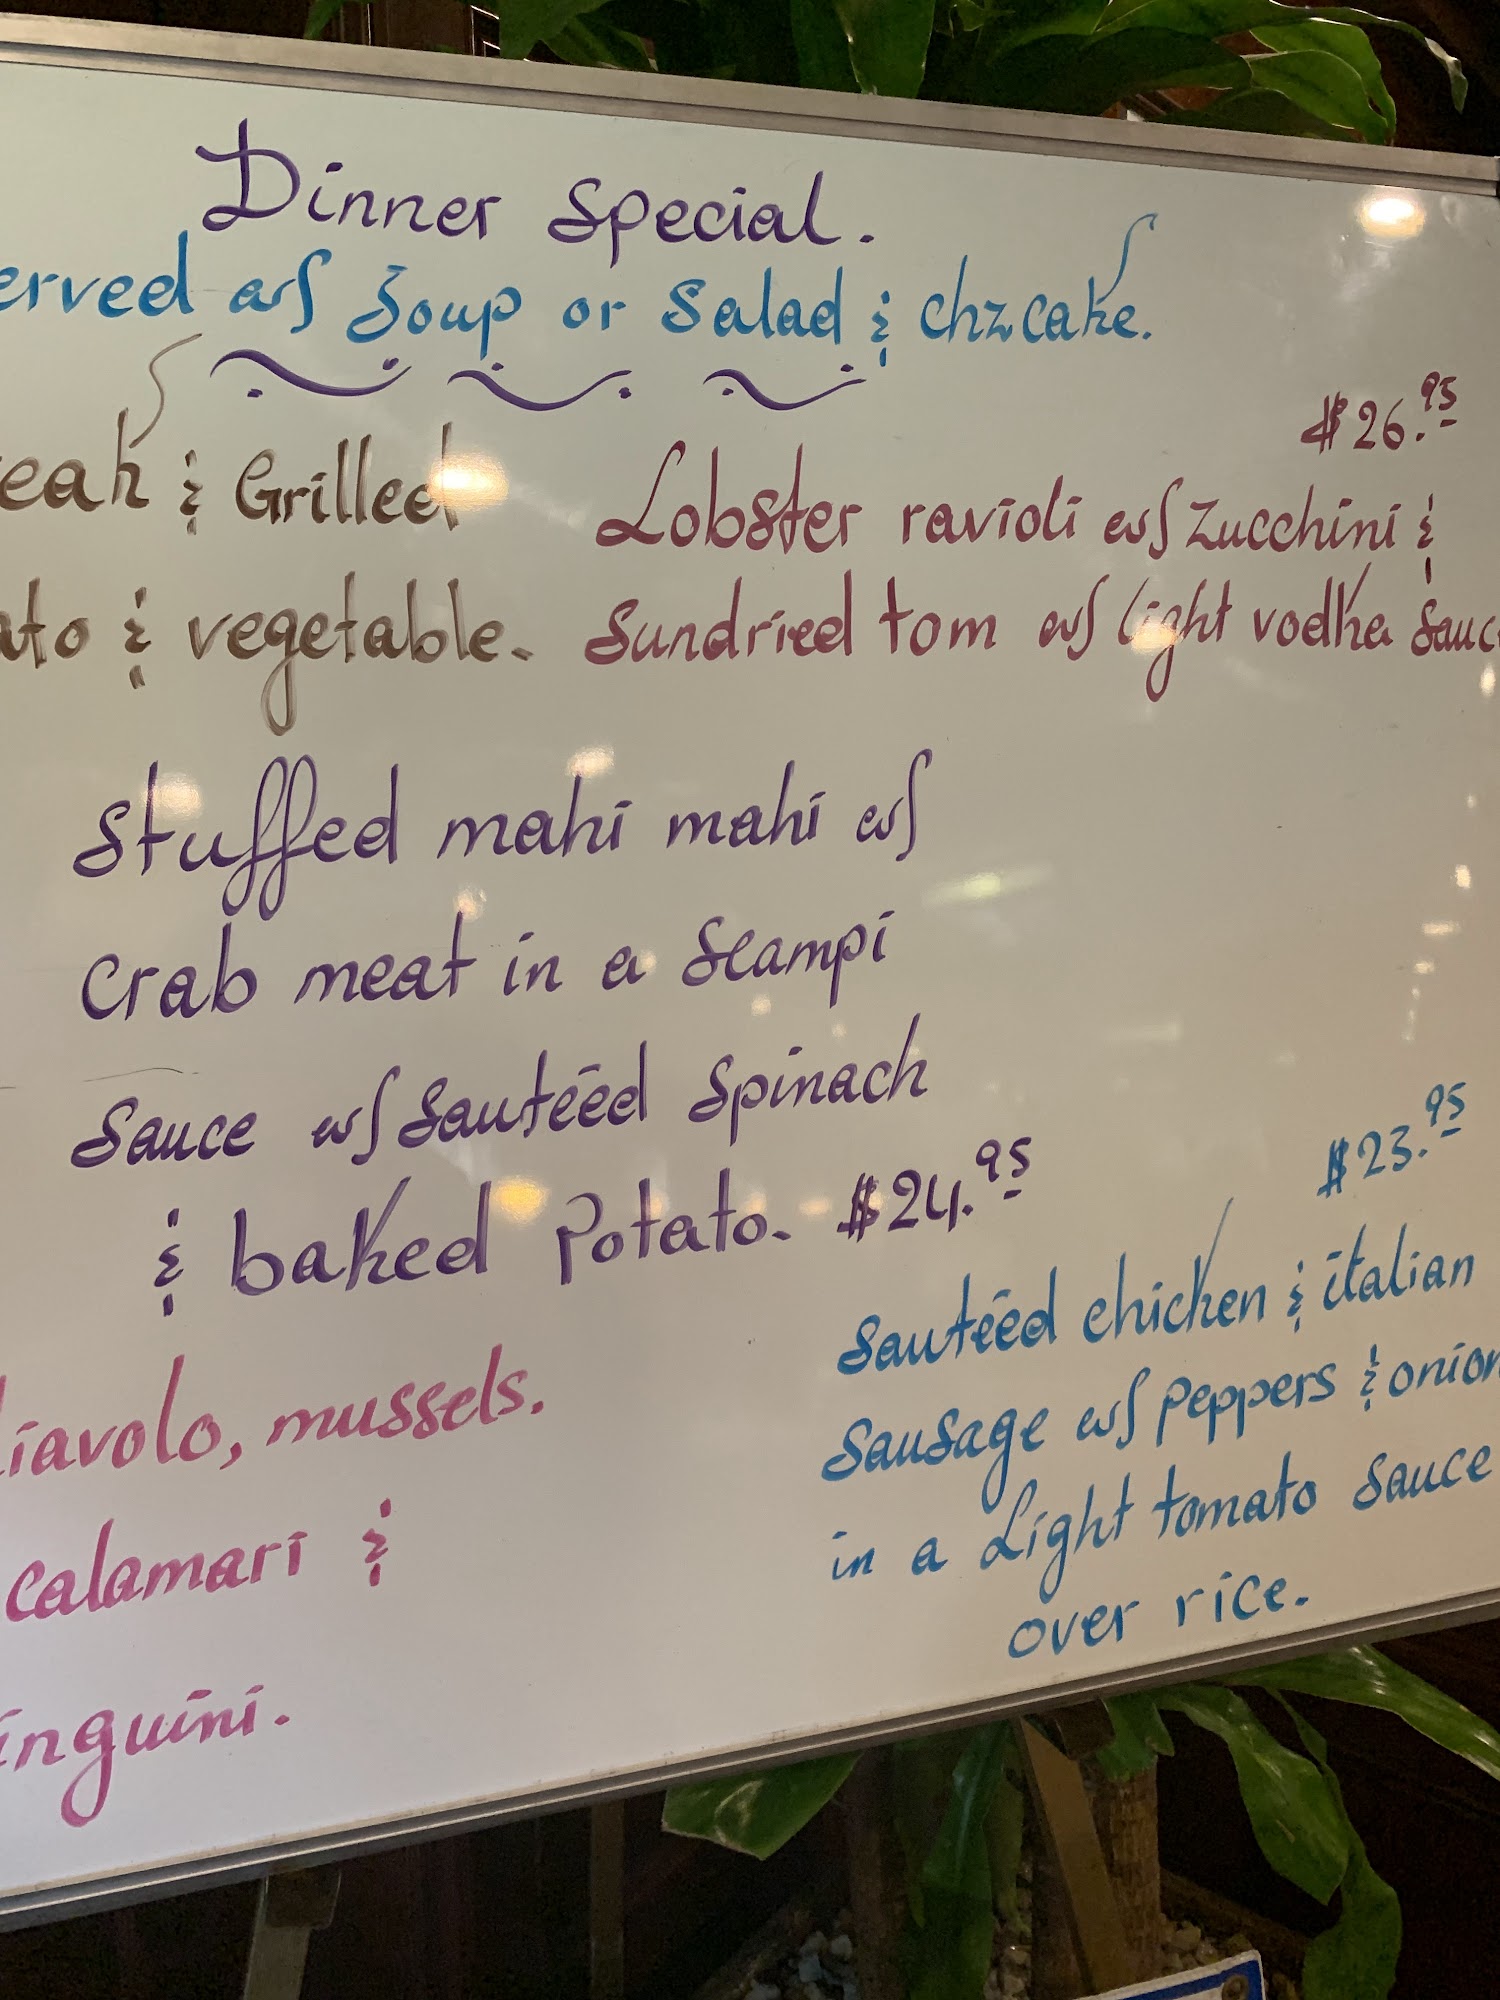 Dinner Special.
erved w/ Soup or Salad & chzcake.
eak & Grilled
ato & vegetable.
$26.95
Lobster ravioli w/ Zucchini &
Sundried tom w/ light vodka Sauc
Stuffed mahi mahi w/
Crab meat in a Scampi
Sauce w/ Sautéed Spinach
& baked Potato. $24.95
iavolo, mussels.
calamari &
inguini.
$23.95
Sautéed chicken & italian
Sausage w/ Peppers & onion
in a Light tomato Sauce
over rice.